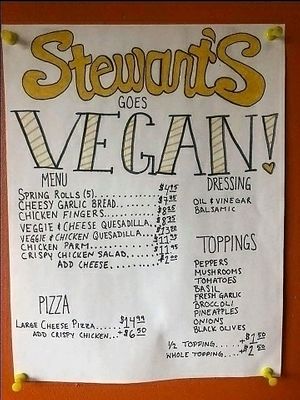 Stewart's
GOES
VEGAN!
MENU
SPRING ROLLS (5)............$4.95
CHEESY GARLIC BREAD.......$7.95
CHICKEN FINGERS...........$8.25
VEGGIE & CHEESE QUESADILLA..$8.95
VEGGIE & CHICKEN QUESADILLA..$13.80
CHICKEN PARM..............$11.95
CRISPY CHICKEN SALAD.......$11.95
ADD CHEESE....$2.00
DRESSING
OIL & VINEGAR
BALSAMIC
TOPPINGS
PEPPERS
MUSHROOMS
TOMATOES
BASIL
FRESH GARLIC
BROCCOLI
PINEAPPLES
ONIONS
BLACK OLIVES
1/2 TOPPING.....+$1.50
WHOLE TOPPING....+$2.50
PIZZA
LARGE CHEESE PIZZA.....$14.99
ADD CRISPY CHICKEN...+$6.50